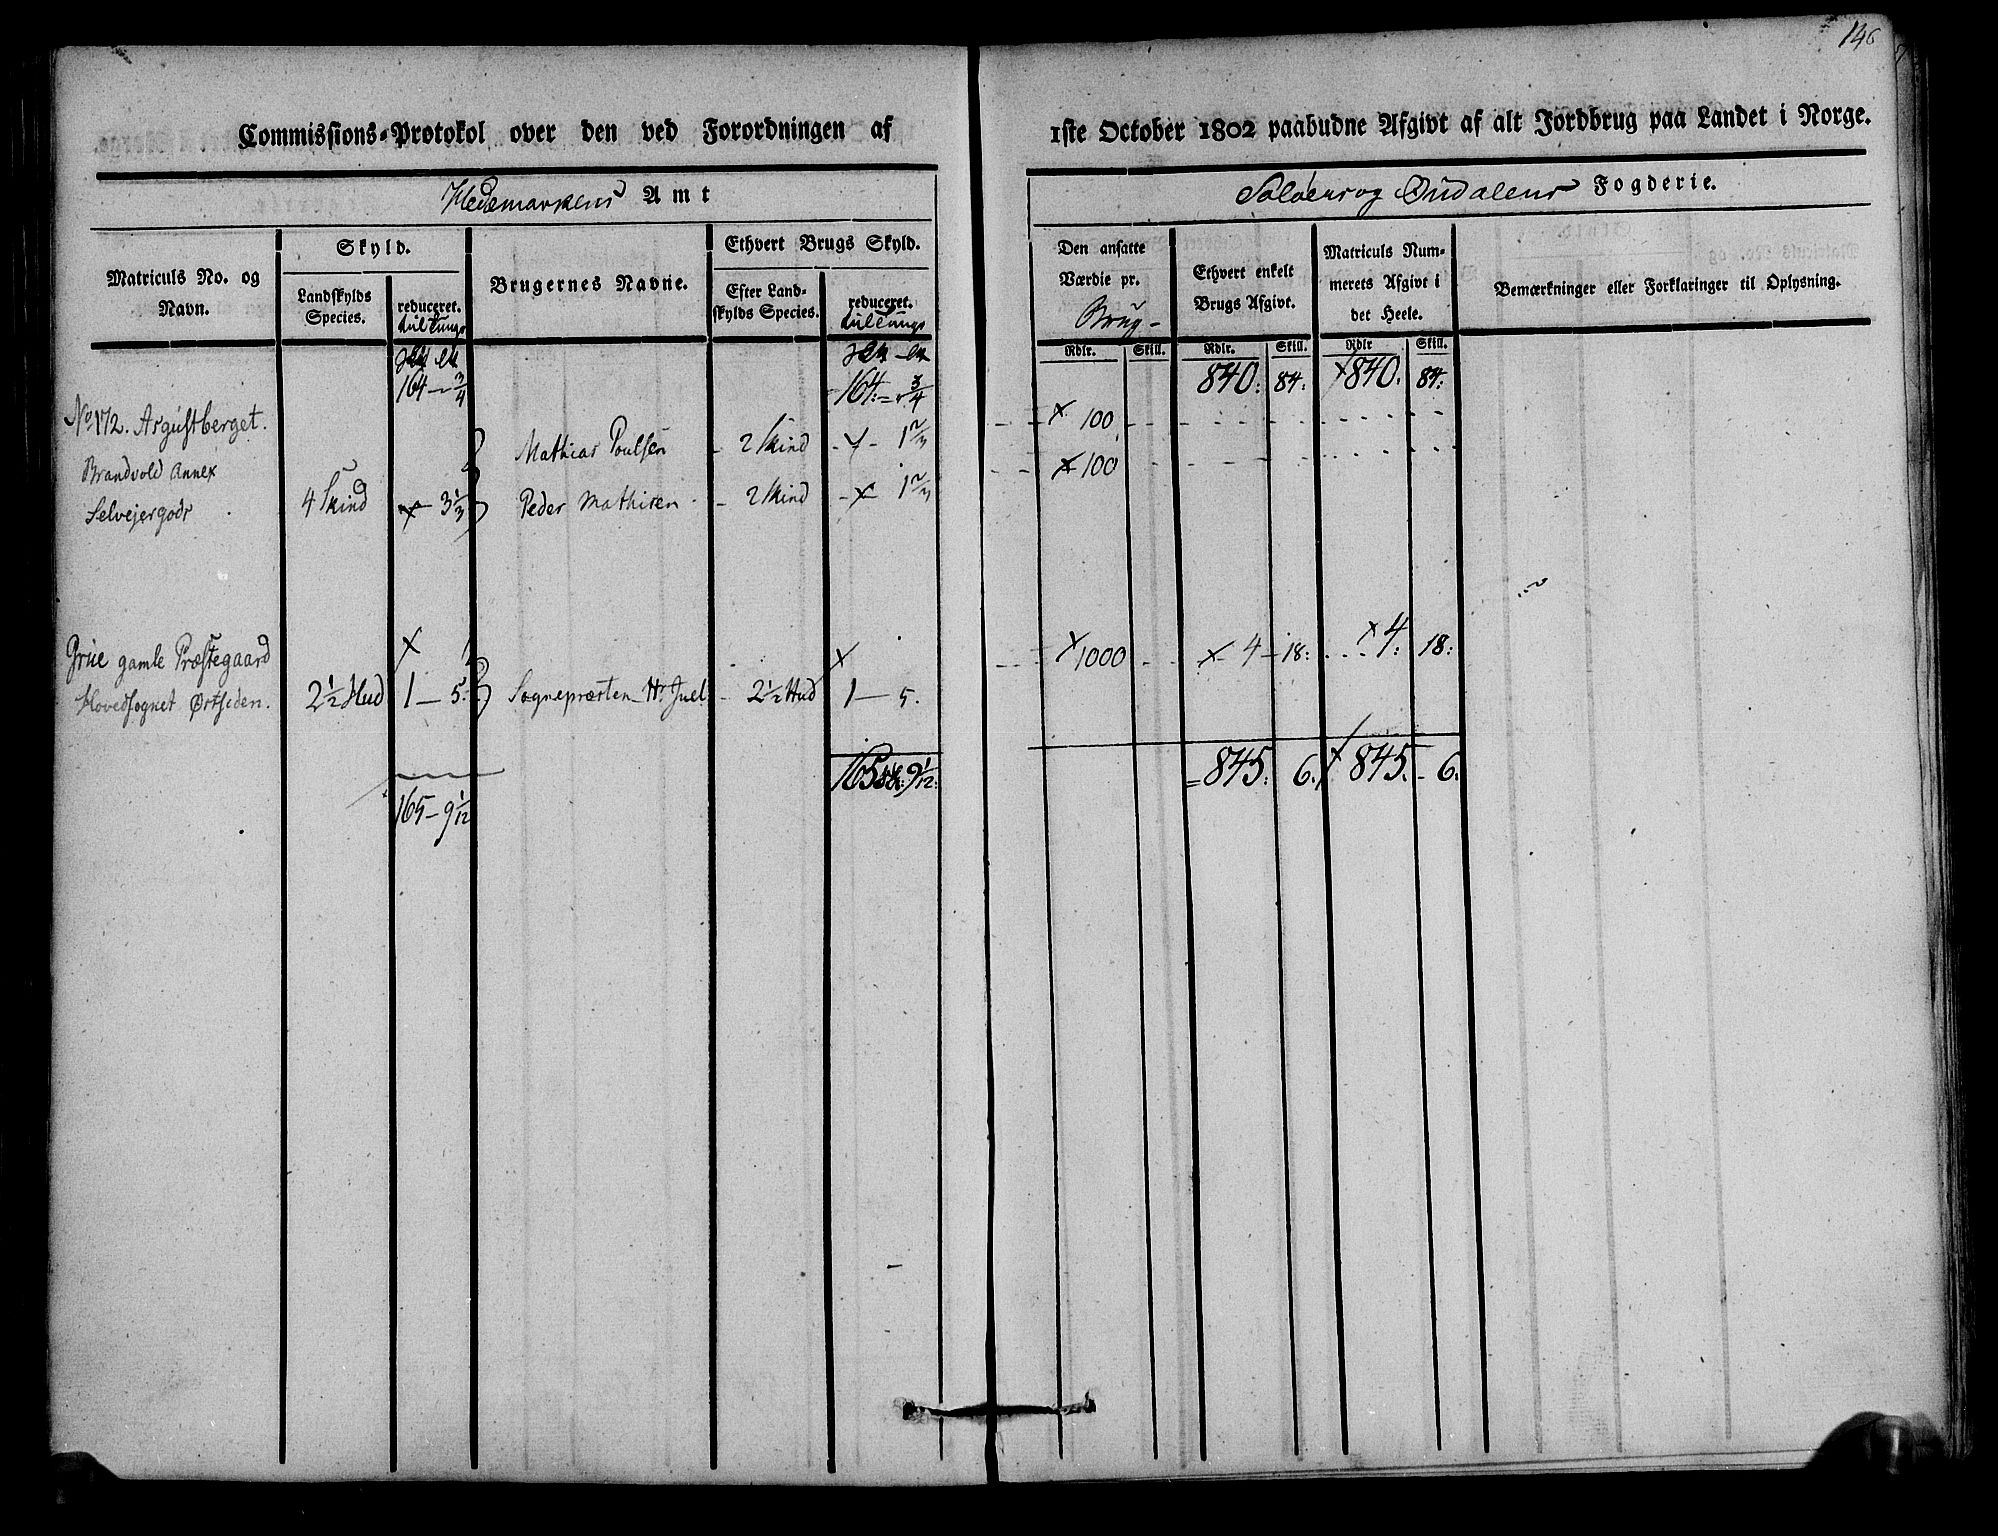 146
Commissions-Protokol over den ved Forordningen af 1ste October 1802 paabudne Afgivt af alt Jordbrug paa Landet i Norge.
Hedemarkens Amt
Soløers og Oudalens Fogderie.
Matriculs No. og Navn.
Skyld.
Landskylds Species.
reduceret.
Brugernes Navne.
Ethvert Brugs Skyld.
Efter Landskylds Species.
reduceret.
Den ansatte Værdie pr. Brug-
Ethvert enkelt Brugs Afgivt.
Matriculs Nummerets Afgivt i det Heele.
Bemærkninger eller Forklaringer til Oplysning.
Rdlr. Skill. Rdlr. Skill. Rdlr Skill.
164 - 3/4 164: = 3/4 840: 84: 840. 84:
No 172. Asgustberget. 100
Brandvold Annex Mathias Poulsen - 2 Skind - 1 2/3 100
Selvejergods 4 Skind 3 1/3 Peder Mathisen - 2 Skind - 1 2/3
Grue gamle Præstegaard 1000 4 - 18: 4: 18:
Hovedsognet Østsiden. 2 1/2 Hud 1 - 5. Sognepræsten Hr Juel - 2 1/2 Hud 1 - 5.
165 9 1/12: = 845: 6. 845. - 6.
165 - 9 1/12